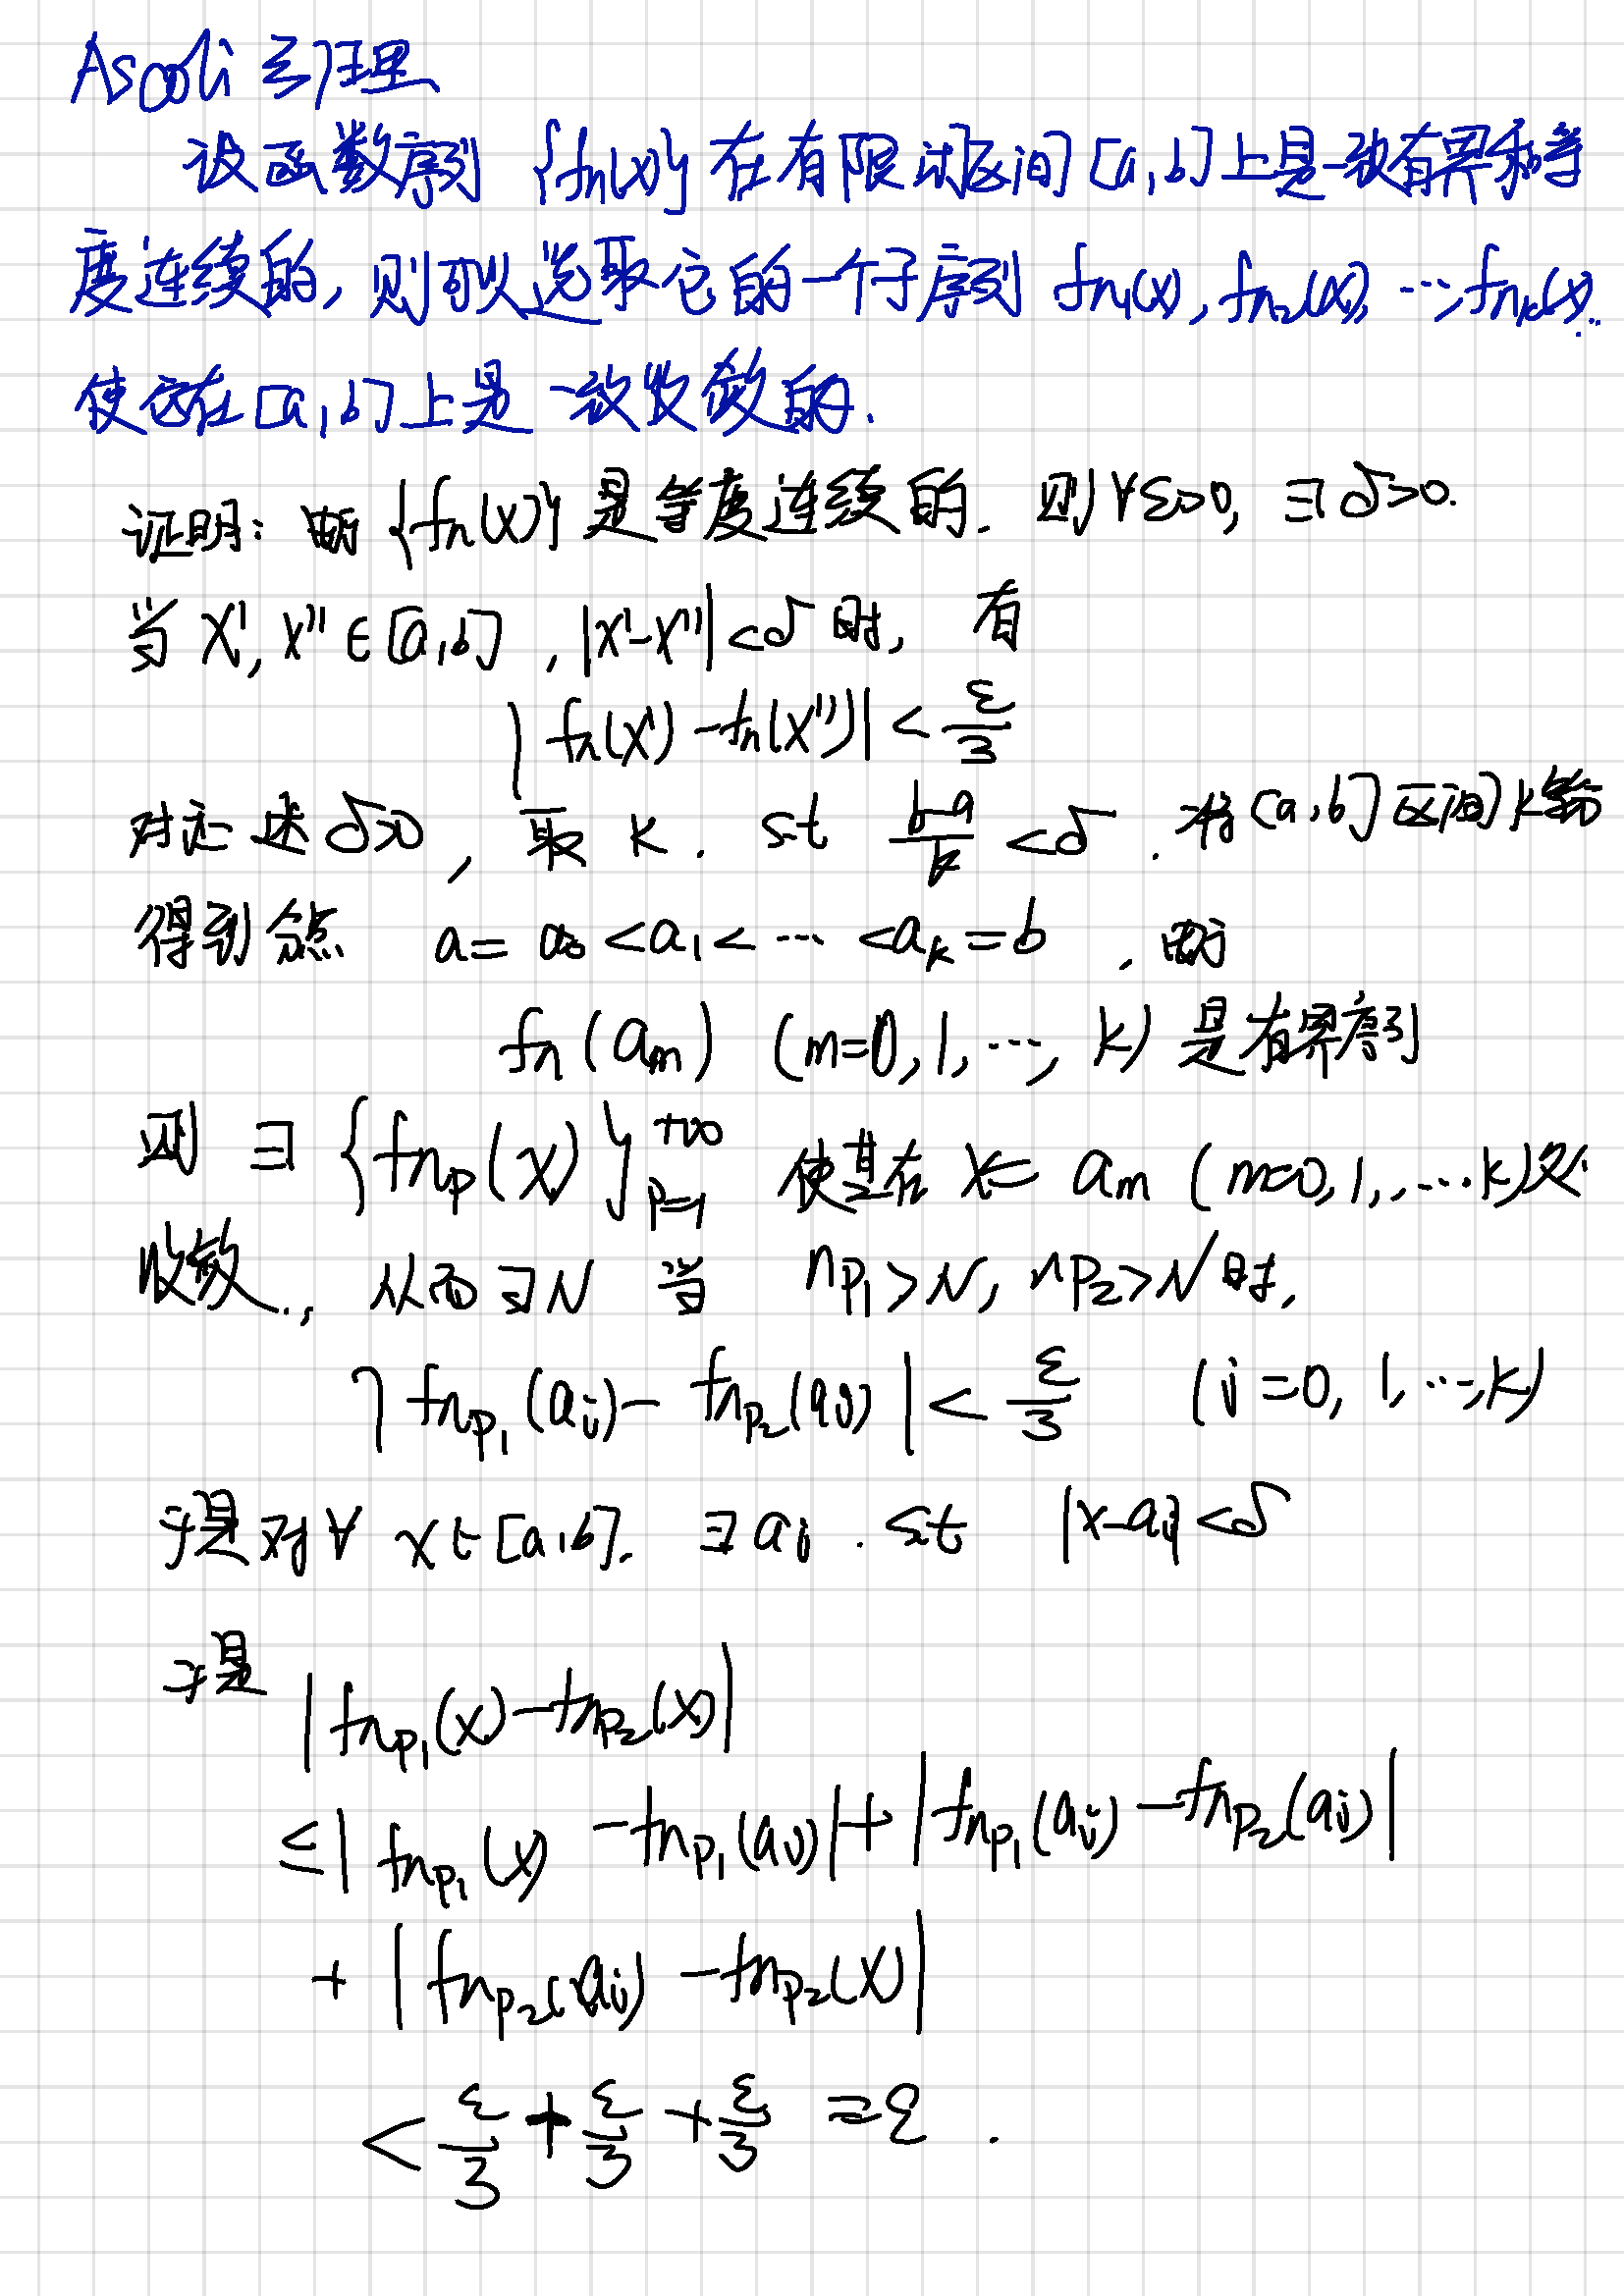 Ascoli 引理
设函数序列 {fn(x)} 在有限闭区间 [a,b] 上是一致有界和等
度连续的, 则可以选取它的一个子序列 fn₁(x), fn₂(x), …, fnₖ(x)…
使它在 [a,b] 上是一致收敛的.
证明: 由于 {fn(x)} 是等度连续的. 则 ∀ε>0, ∃δ>0.
当 x', x'' ∈ [a,b], |x'-x''| < δ 时, 有
|fn(x') - fn(x'')| < ε/3
对上述 δ>0, 取 k. s.t (b-a)/k < δ. 将 [a,b] 区间 k 等分
得到分点 a = a₀ < a₁ < … < aₖ = b, 由于
fn(aₘ) (m=0,1,…,k) 是有界序列
则 ∃ {fnₚ(x)}ₚ₌₁^{+∞} 使其在 x = aₘ (m=0,1,…k) 处
收敛., 从而 ∃N 当 nₚ₁ > N, nₚ₂ > N 时,
|fnₚ₁(aᵢ) - fnₚ₂(aᵢ)| < ε/3 (i=0,1,…,k)
于是对 ∀ x ∈ [a,b]. ∃aᵢ. s.t |x-aᵢ| < δ
于是 |fnₚ₁(x) - fnₚ₂(x)|
≤ |fnₚ₁(x) - fnₚ₁(aᵢ)| + |fnₚ₁(aᵢ) - fnₚ₂(aᵢ)|
+ |fnₚ₂(aᵢ) - fnₚ₂(x)|
< ε/3 + ε/3 + ε/3 = ε.